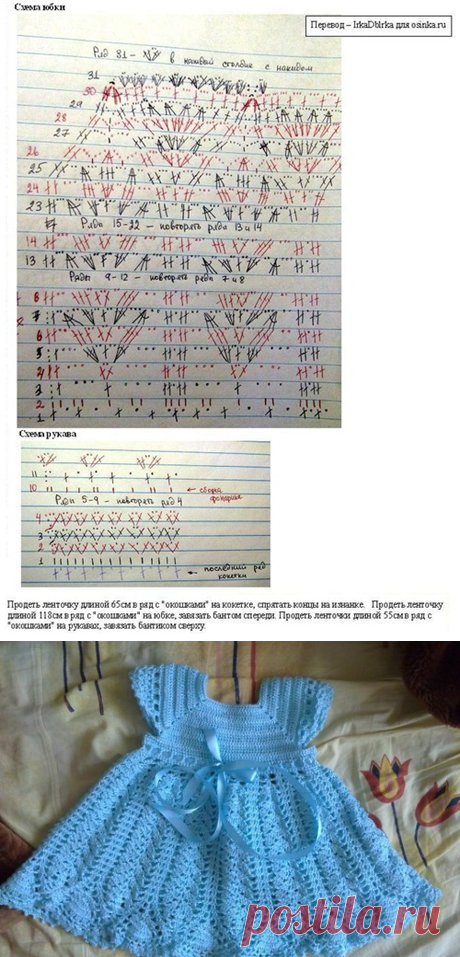 Схема юбки
Перевод – IrkaDbIrka для osinka.ru
Ряд 31 – в каждый столбик с накидом
31
30
29
28
27
26
25
24
23
Ряды 15-22 – повторять ряды 13 и 14
14
13
Ряды 9-12 – повторять ряды 7 и 8
8
7
6
5
4
3
2
1
Схема рукава
11
10 ← сборка фонарика
Ряды 5-9 – повторять ряд 4
4
3
2
1
← последний ряд кокетки
Продеть ленточку длиной 65см в ряд с "окошками" на кокетке, спрятать концы на изнанке. Продеть ленточку
длиной 118см в ряд с "окошками" на юбке, завязать бантом спереди. Продеть ленточки длиной 55см в ряд с
"окошками" на рукавах, завязать бантиком сверху.
postila.ru